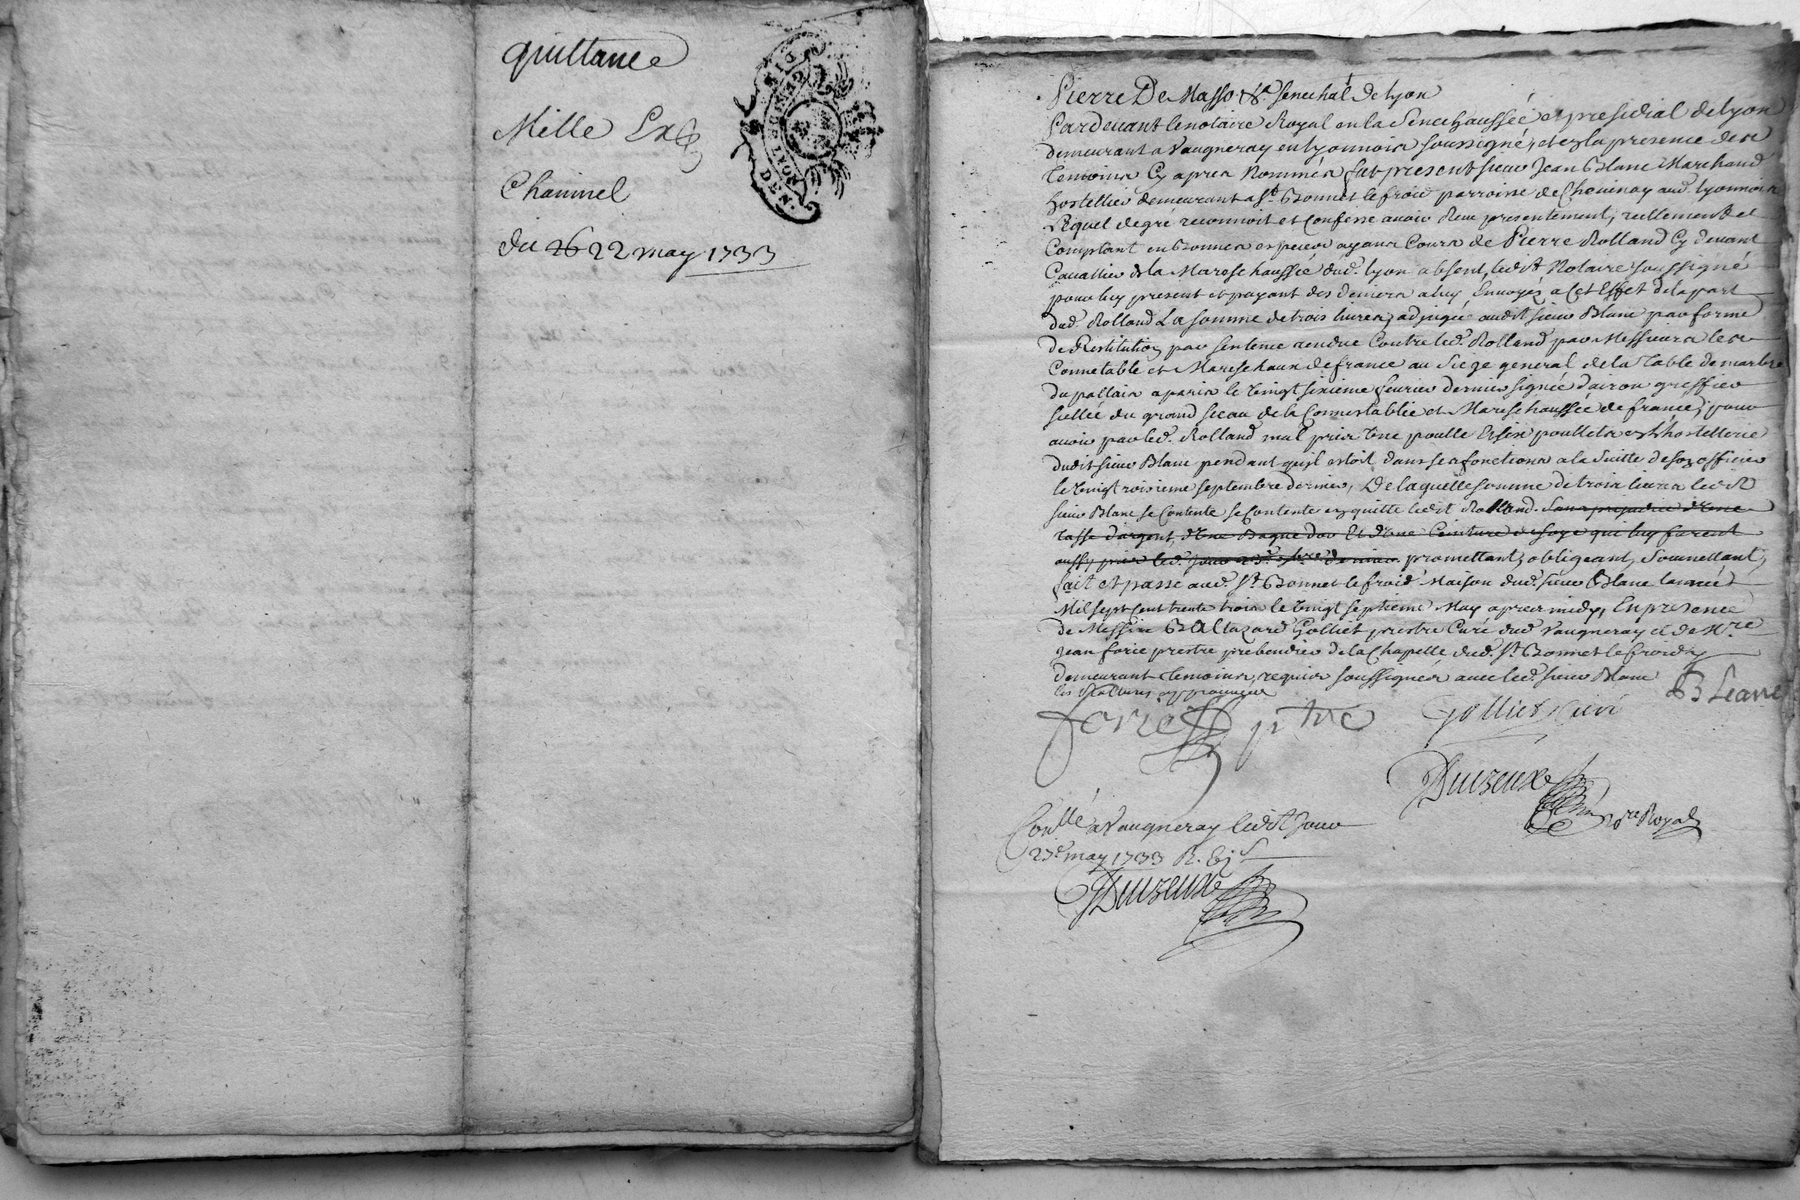 quittance
Mille Ex
Chaninel
du 26 22 may 1733
GENERALITE DE LYON
Pierre De Masso &a. senechal de lyon
Pardevant le notaire Royal en la Senechaussée et presidial de lyon
demeurant a Vaugneray en lyonnois soussigné, et en la presence des
temoins Cy apres Nommés fut present sieur Jean Blanc Marchand
hostellier demeurant a St. Bonnet le froid parroisse de Chevinay aud. lyonnois
Lequel de gré reconnoit et Confesse avoir Receu presentement, reellement et
Comptant en bonnes especes ayans Cours de Pierre Rolland Cy devant
Cavallier de la Mareschaussée dud. lyon absent, ledit Notaire soussigné
pour luy present et payant des deniers a luy Envoyés a Cet Effet de la part
dud. Rolland La somme de trois livres, adjugée audit sieur Blanc par forme
de Restitution par sentence rendue Contre led. Rolland par Messieurs les
Connetable et Mareschaux de france au Siege general de la Table de marbre
du pallais a paris le Vingt sixieme fevrier dernier signée dairon greffier
sellée du grand sceau de la Connestablie et Mareschaussée de france, pour
avoir par led. Rolland mal pris Une poulle Et six poullets en l'hostellerie
dudit sieur Blanc pendant qu'il estoit dans ses fonctions a la suitte de son officier
le Vingt troisieme septembre dernier, De laquelle somme de trois livres ledit
sieur Blanc se Contente se Contente en quitte ledit Rolland. Sans prejudice d'Une
tasse d'argent, d'Une Bague d'or Et d'Une Ceinture de soye qui luy furent
aussy pris led. jour 23e. 7bre dernier promettant, obligeant, Soumettant,
fait et passé aud. St. Bonnet le froid Maison dud. sieur Blanc l'année
Mil sept cent trente trois le Vingt septieme May apres midy, En presence
de Messire Baltazard Golliet prestre Curé dud Vaugneray et de Mre
Jean forie prestre prebendier de la Chapelle dud. St. Bonnet le froid y
demeurant temoins, requis soussignés avec led. sieur Blanc
les Ratures approuvées
B Leane
forie ptre
Golliet curé
Duizeux
Nre Royal
Conllé a Vaugneray ledit Jour
27e may 1733 R.
Duizeux